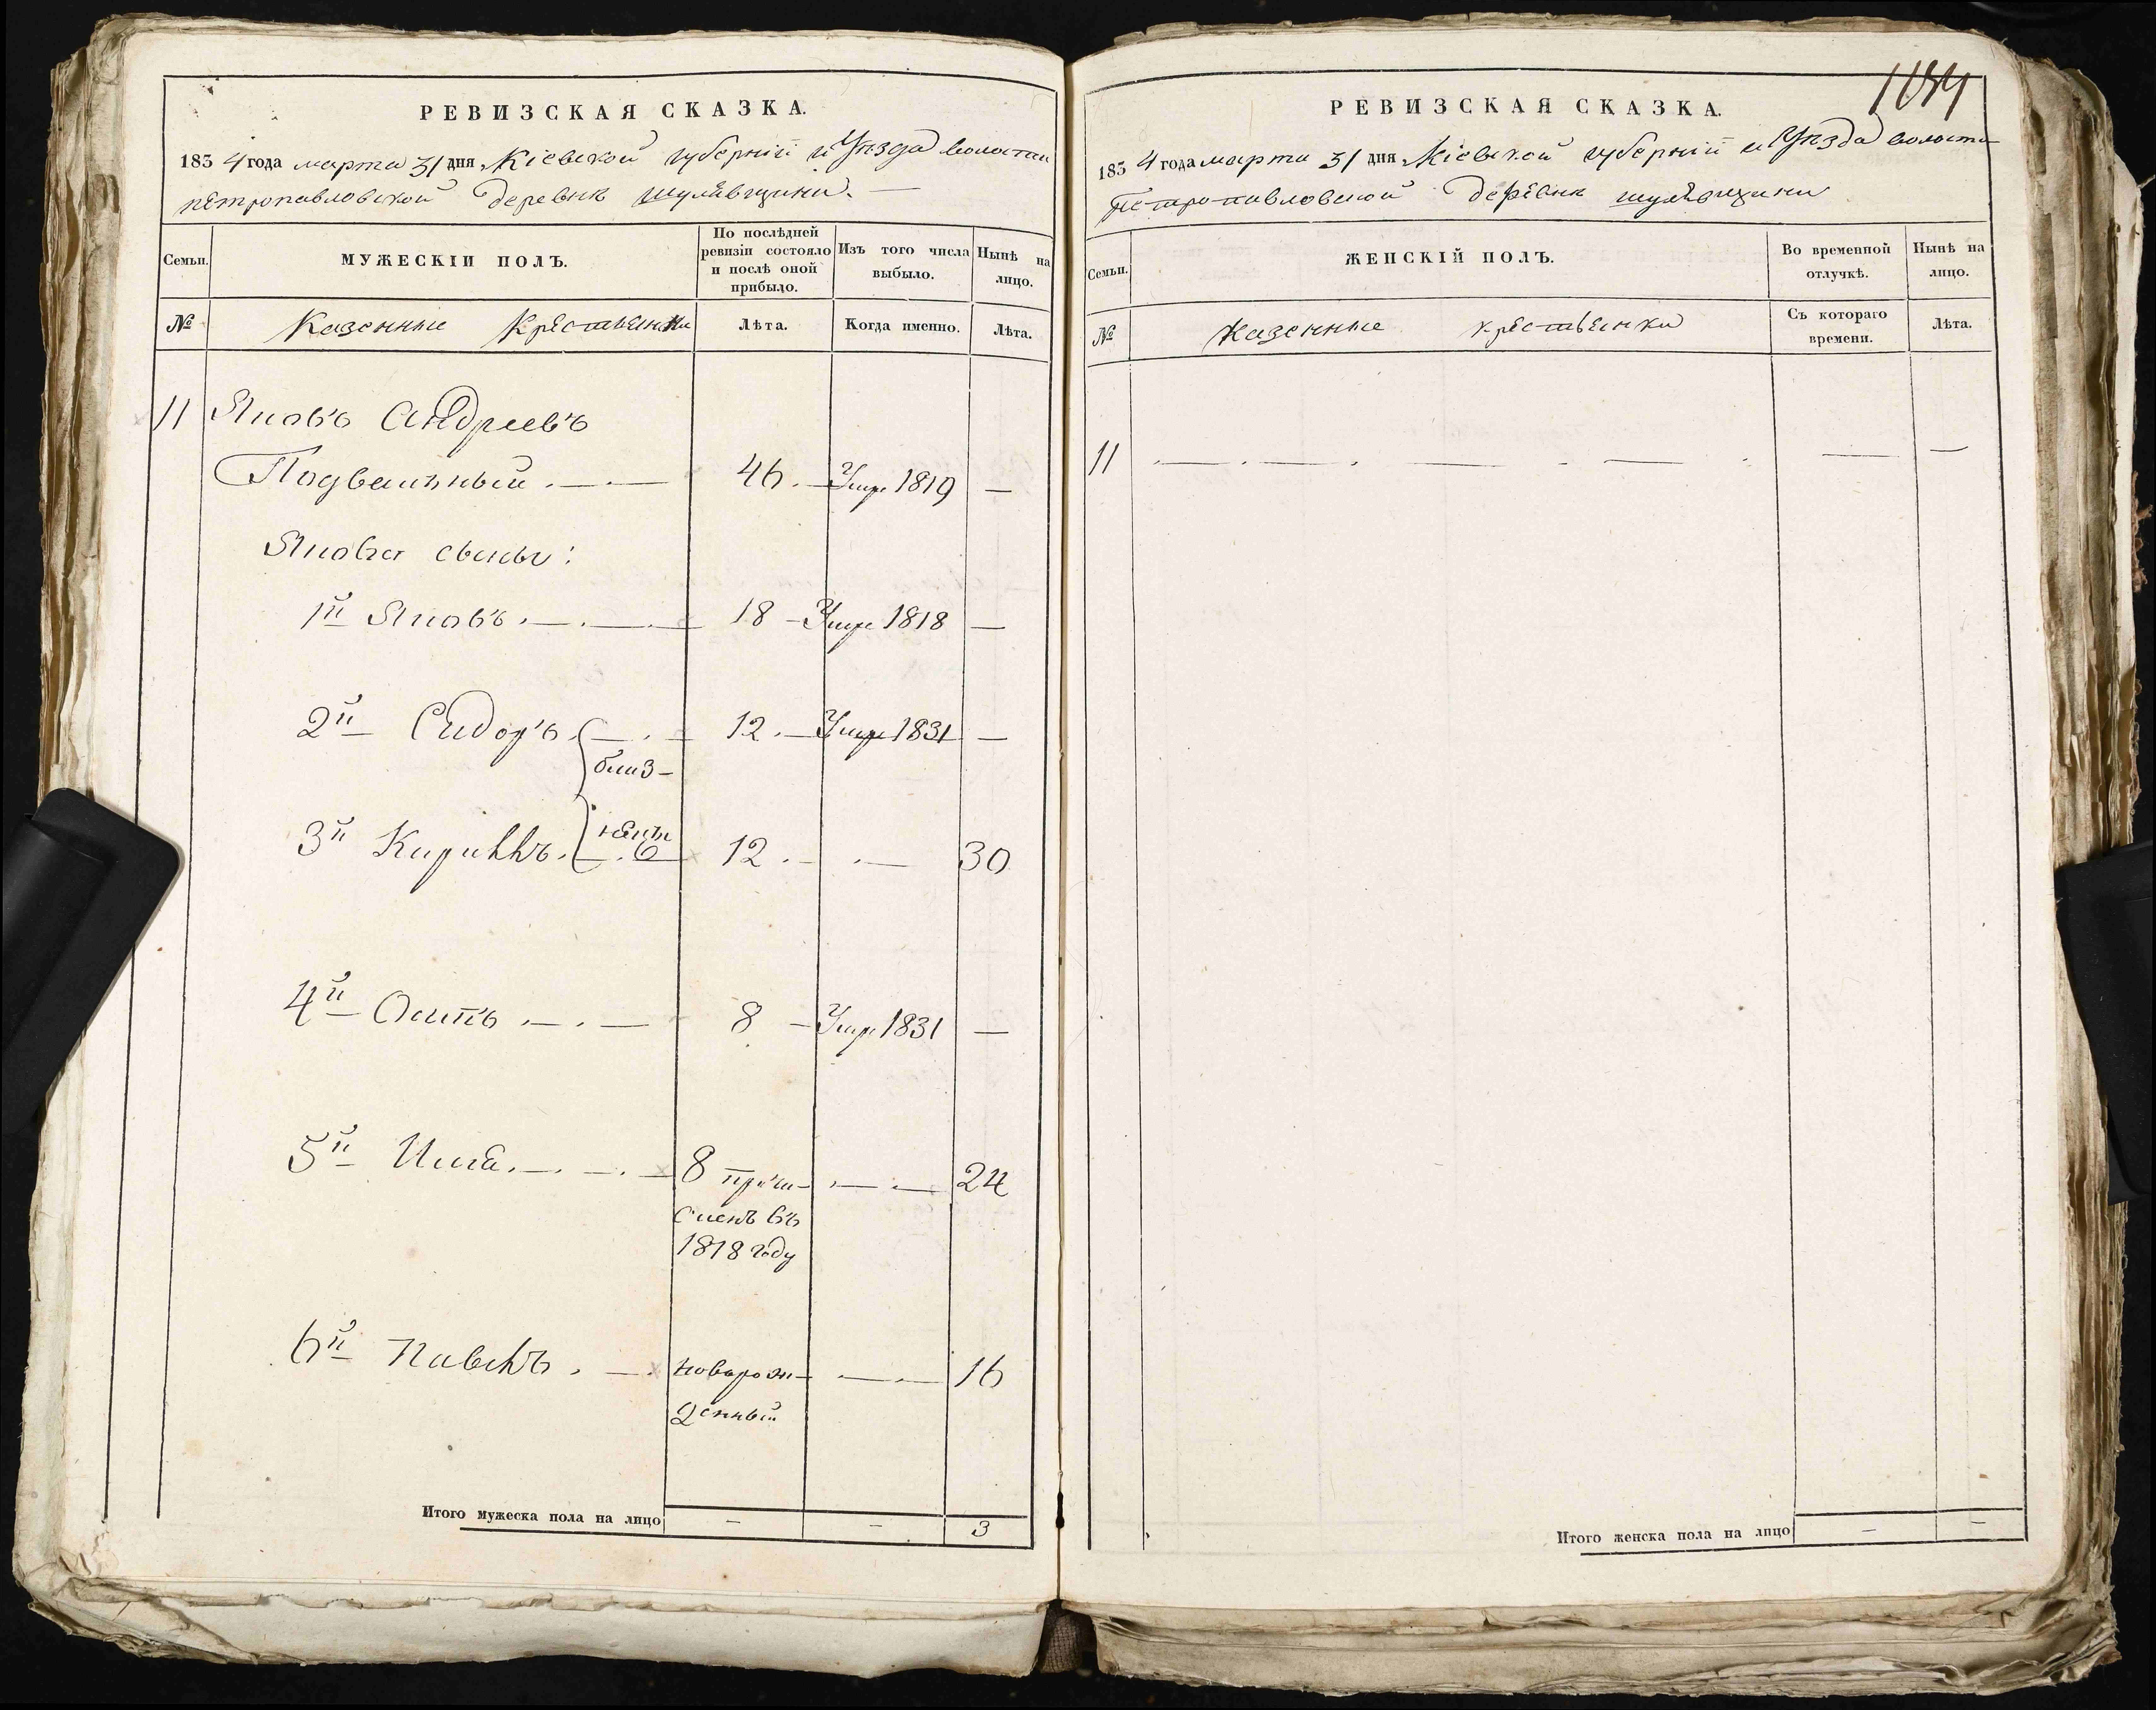 РЕВИЗСКАЯ СКАЗКА.
183 4 года марта 31 дня Кіевской губерніи и Уѣзда волости
петропавловской деревнѣ шулявщини. —
Семьи.
МУЖЕСКІИ ПОЛЪ.
По послѣдней ревизіи состояло и послѣ оной прибыло.
Изъ того числа выбыло.
Нынѣ на лицо.
№
Казенные Крестьянѣ
Лѣта.
Когда именно.
Лѣта.
11 Яковъ Андреевъ
46. — Умре 1819 —
Якова сыны:
1й Яковъ . — . — 18 — Умре 1818 —
2й Сидоръ — . — 12 . — Умре 1831 —
близ-
нецы
3й Кирилъ . — . 12 . — . — 30
4й Осипъ . — . — 8 — Умре 1831 —
5й Илія . — . — . — 8 припи- . — . — 24
сисенъ въ
1818 году
6й Павелъ . — . новорож- — . — 16
денный
Итого мужеска пола на лицо — — 3
1034
РЕВИЗСКАЯ СКАЗКА.
183 4 года марта 31 дня Кіевской губерніи и Уѣзда волости
Петропавловской деревнѣ шулявщини
Семьи.
ЖЕНСКІЙ ПОЛЪ.
Во временной отлучкѣ.
Нынѣ на лицо.
№
Казенные крестьянки
Съ котораго времени.
Лѣта.
11 . — . — . — - — . — —
Итого женска пола на лицо — —